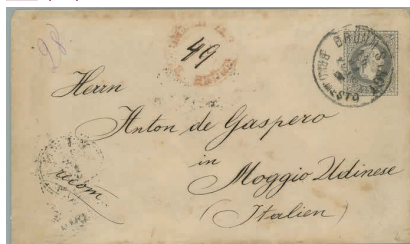 98
49
BRÜNN STADT
Herrn
Anton de Gaspero
in
Moggio Udinese
(Italien)
recom.